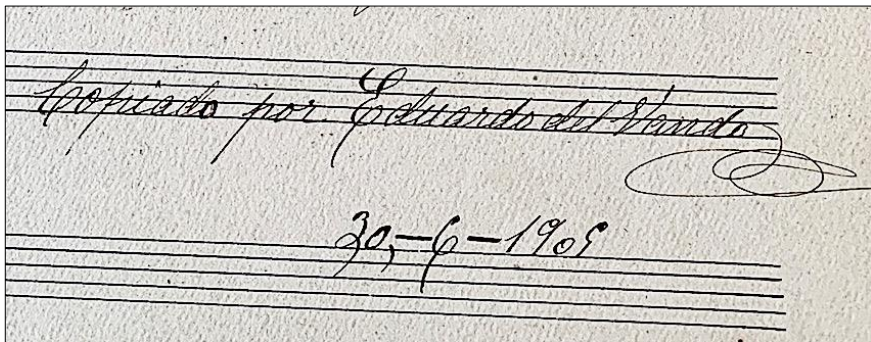 Copiado por Eduardo del Vando
30,-6-1909